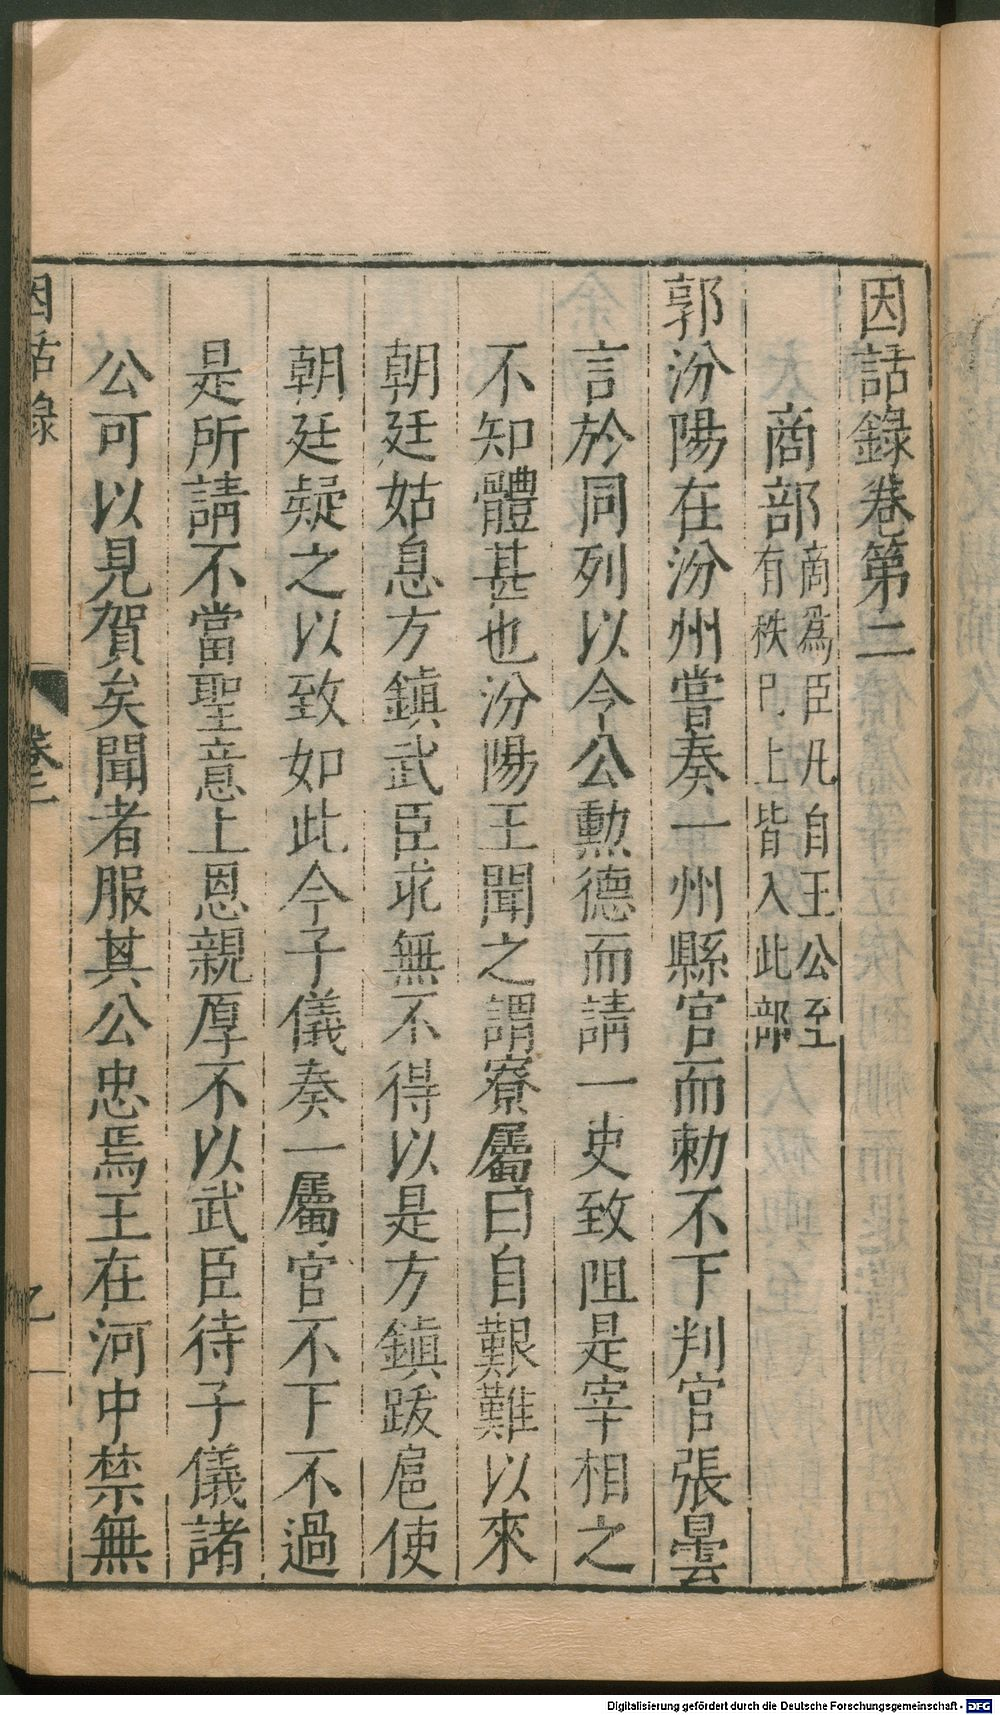 因話錄卷第二
商部商爲臣凡自王公至
有秩巳上皆入此部
郭汾陽在汾州嘗奏一州縣官而勅不下判官張曇
言於同列以令公勲德而請一吏致阻是宰相之
不知體甚也汾陽王聞之謂寮屬曰自艱難以來
朝廷姑息方鎮武臣求無不得以是方鎮跋扈使
朝廷疑之以致如此今子儀奏一屬官不下不過
是所請不當聖意上恩親厚不以武臣待子儀諸
公可以見賀矣聞者服其公忠焉王在河中禁無
因話錄
卷二
一
Digitalisierung gefördert durch die Deutsche Forschungsgemeinschaft - DFG